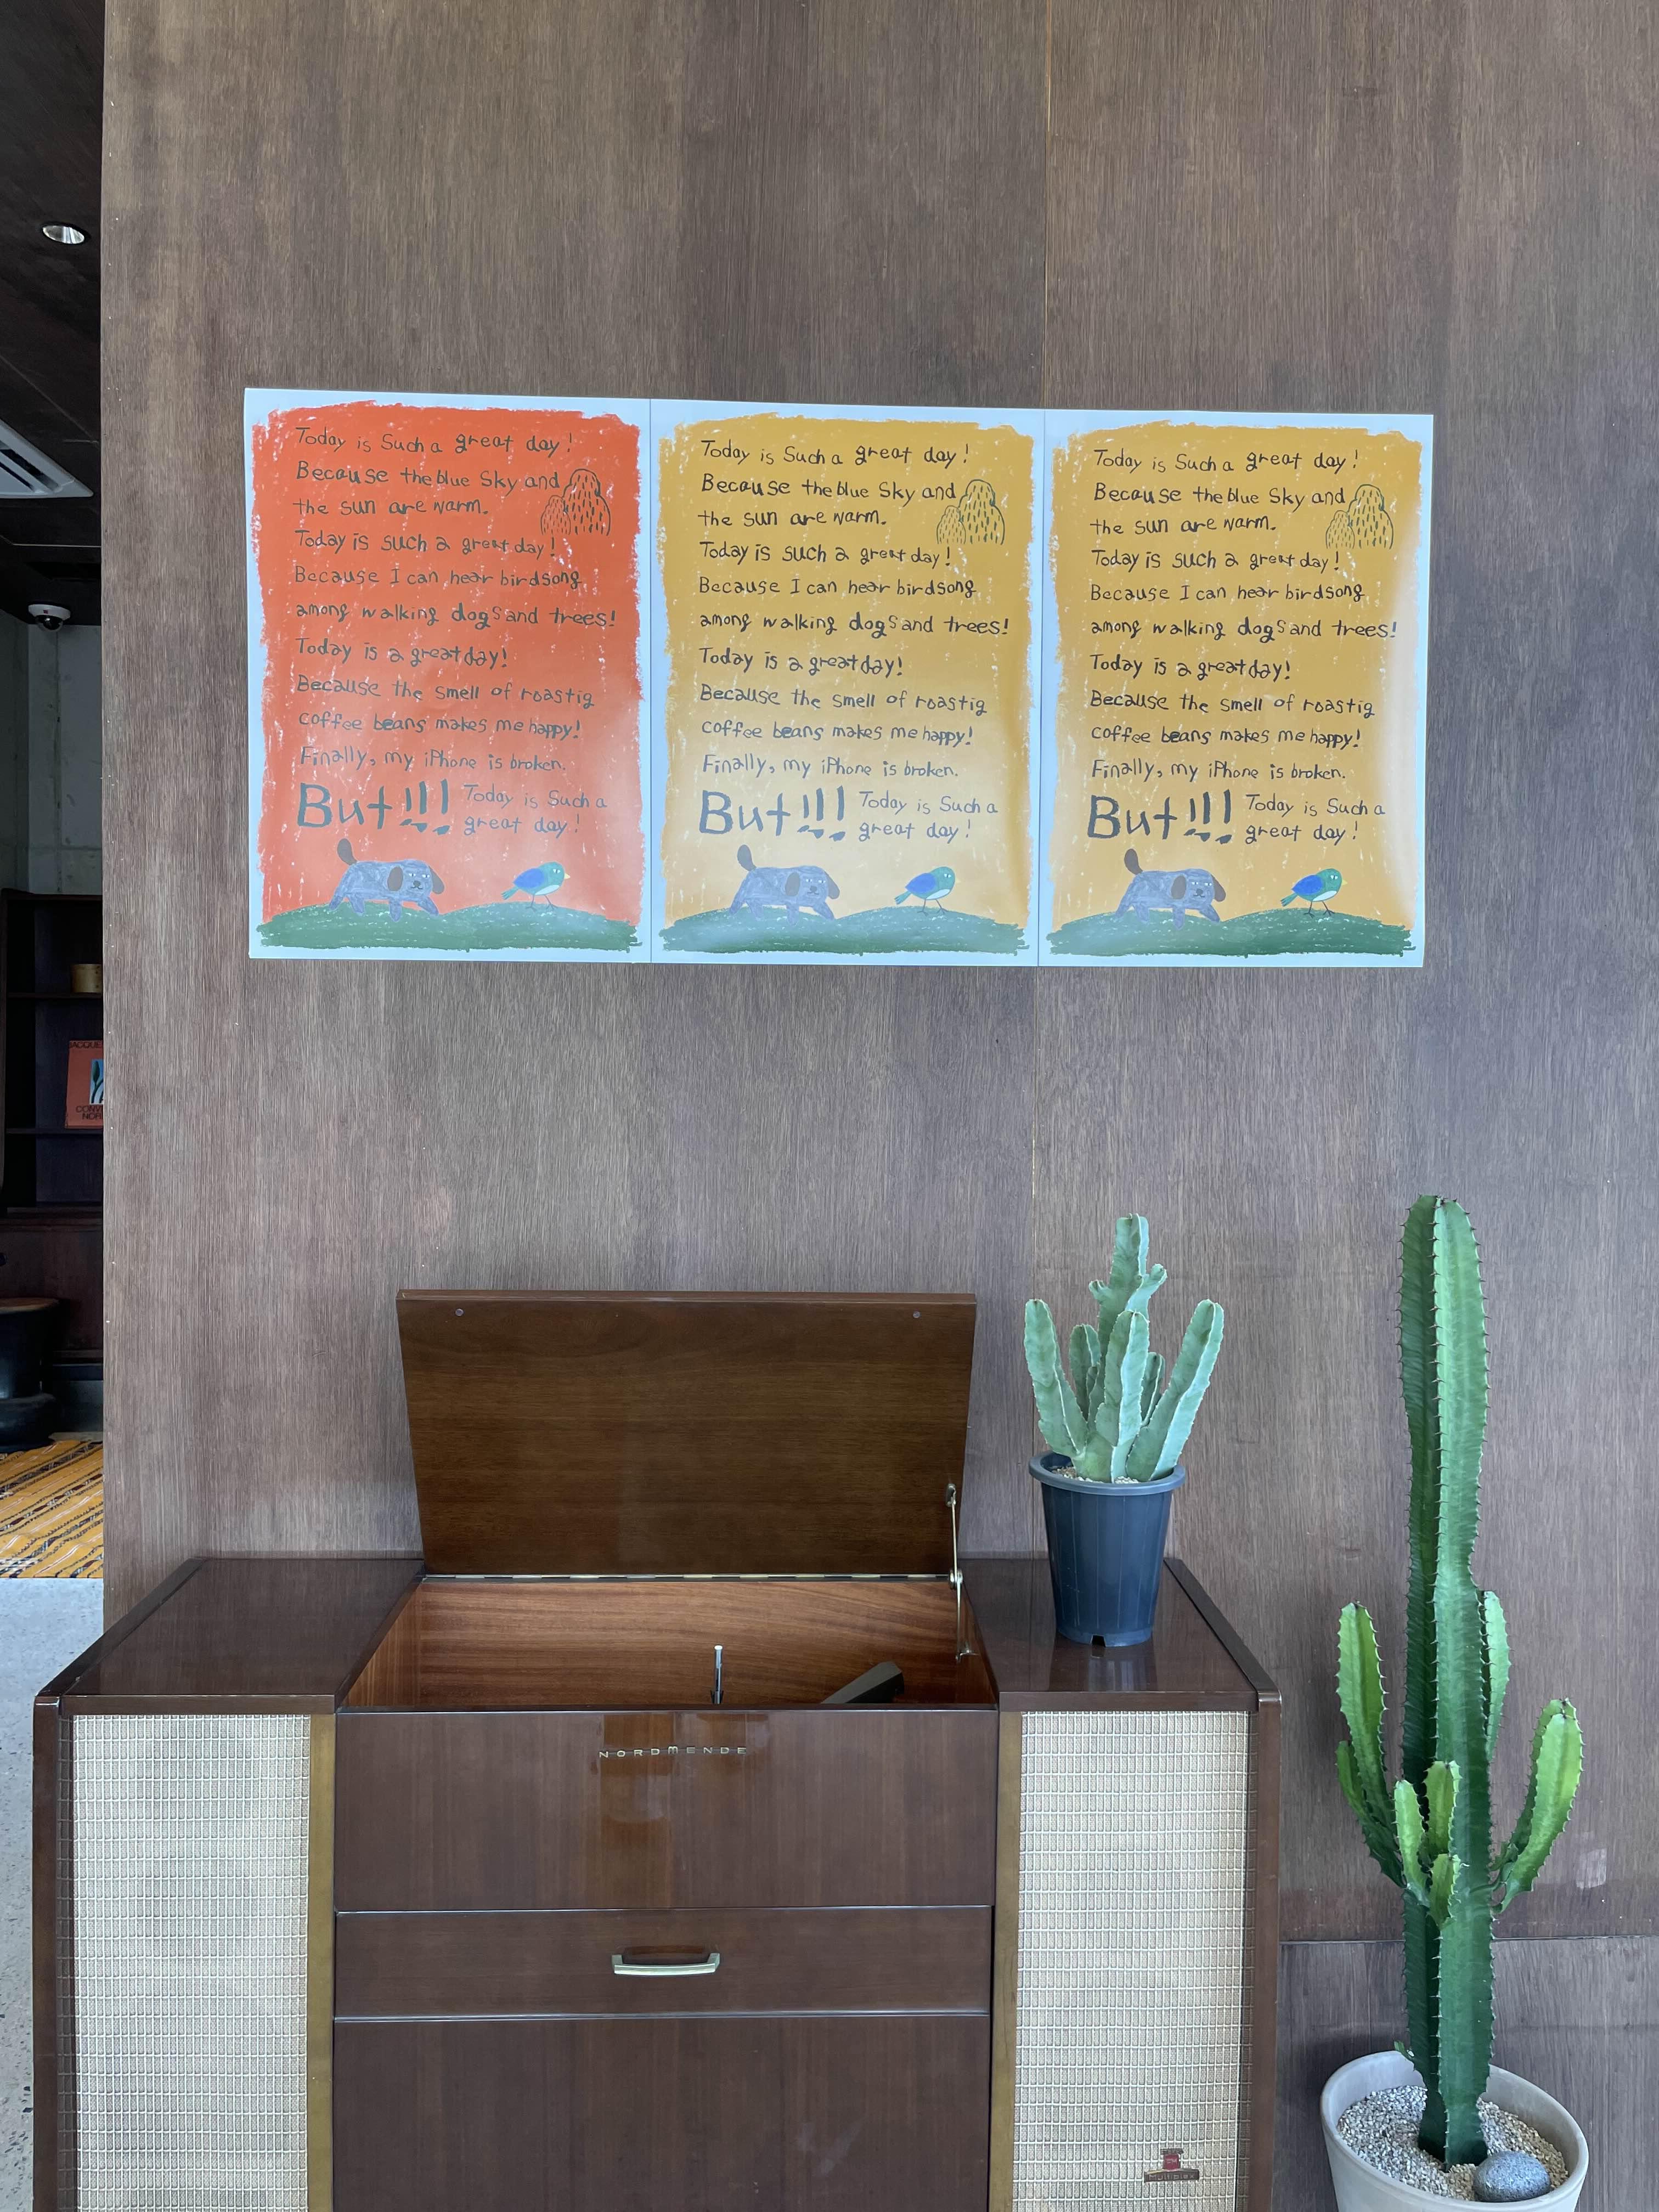 Today is Such a great day!
Because the blue Sky and
the sun are warm.
Today is such a great day!
Because I can hear birdsong
among walking dogs and trees!
Today is a great day!
Because the smell of roastig
coffee beans makes me happy!
Finally, my iPhone is broken.
But!!! Today is Such a
great day!
Today is Such a great day!
Because the blue Sky and
the sun are warm.
Today is such a great day!
Because I can hear birdsong
among walking dogs and trees!
Today is a great day!
Because the smell of roastig
coffee beans makes me happy!
Finally, my iPhone is broken.
But!!! Today is Such a
great day!
Today is Such a great day!
Because the blue Sky and
the sun are warm.
Today is such a great day!
Because I can hear birdsong
among walking dogs and trees!
Today is a great day!
Because the smell of roastig
coffee beans makes me happy!
Finally, my iPhone is broken.
But!!! Today is Such a
great day!
NORDMENDE